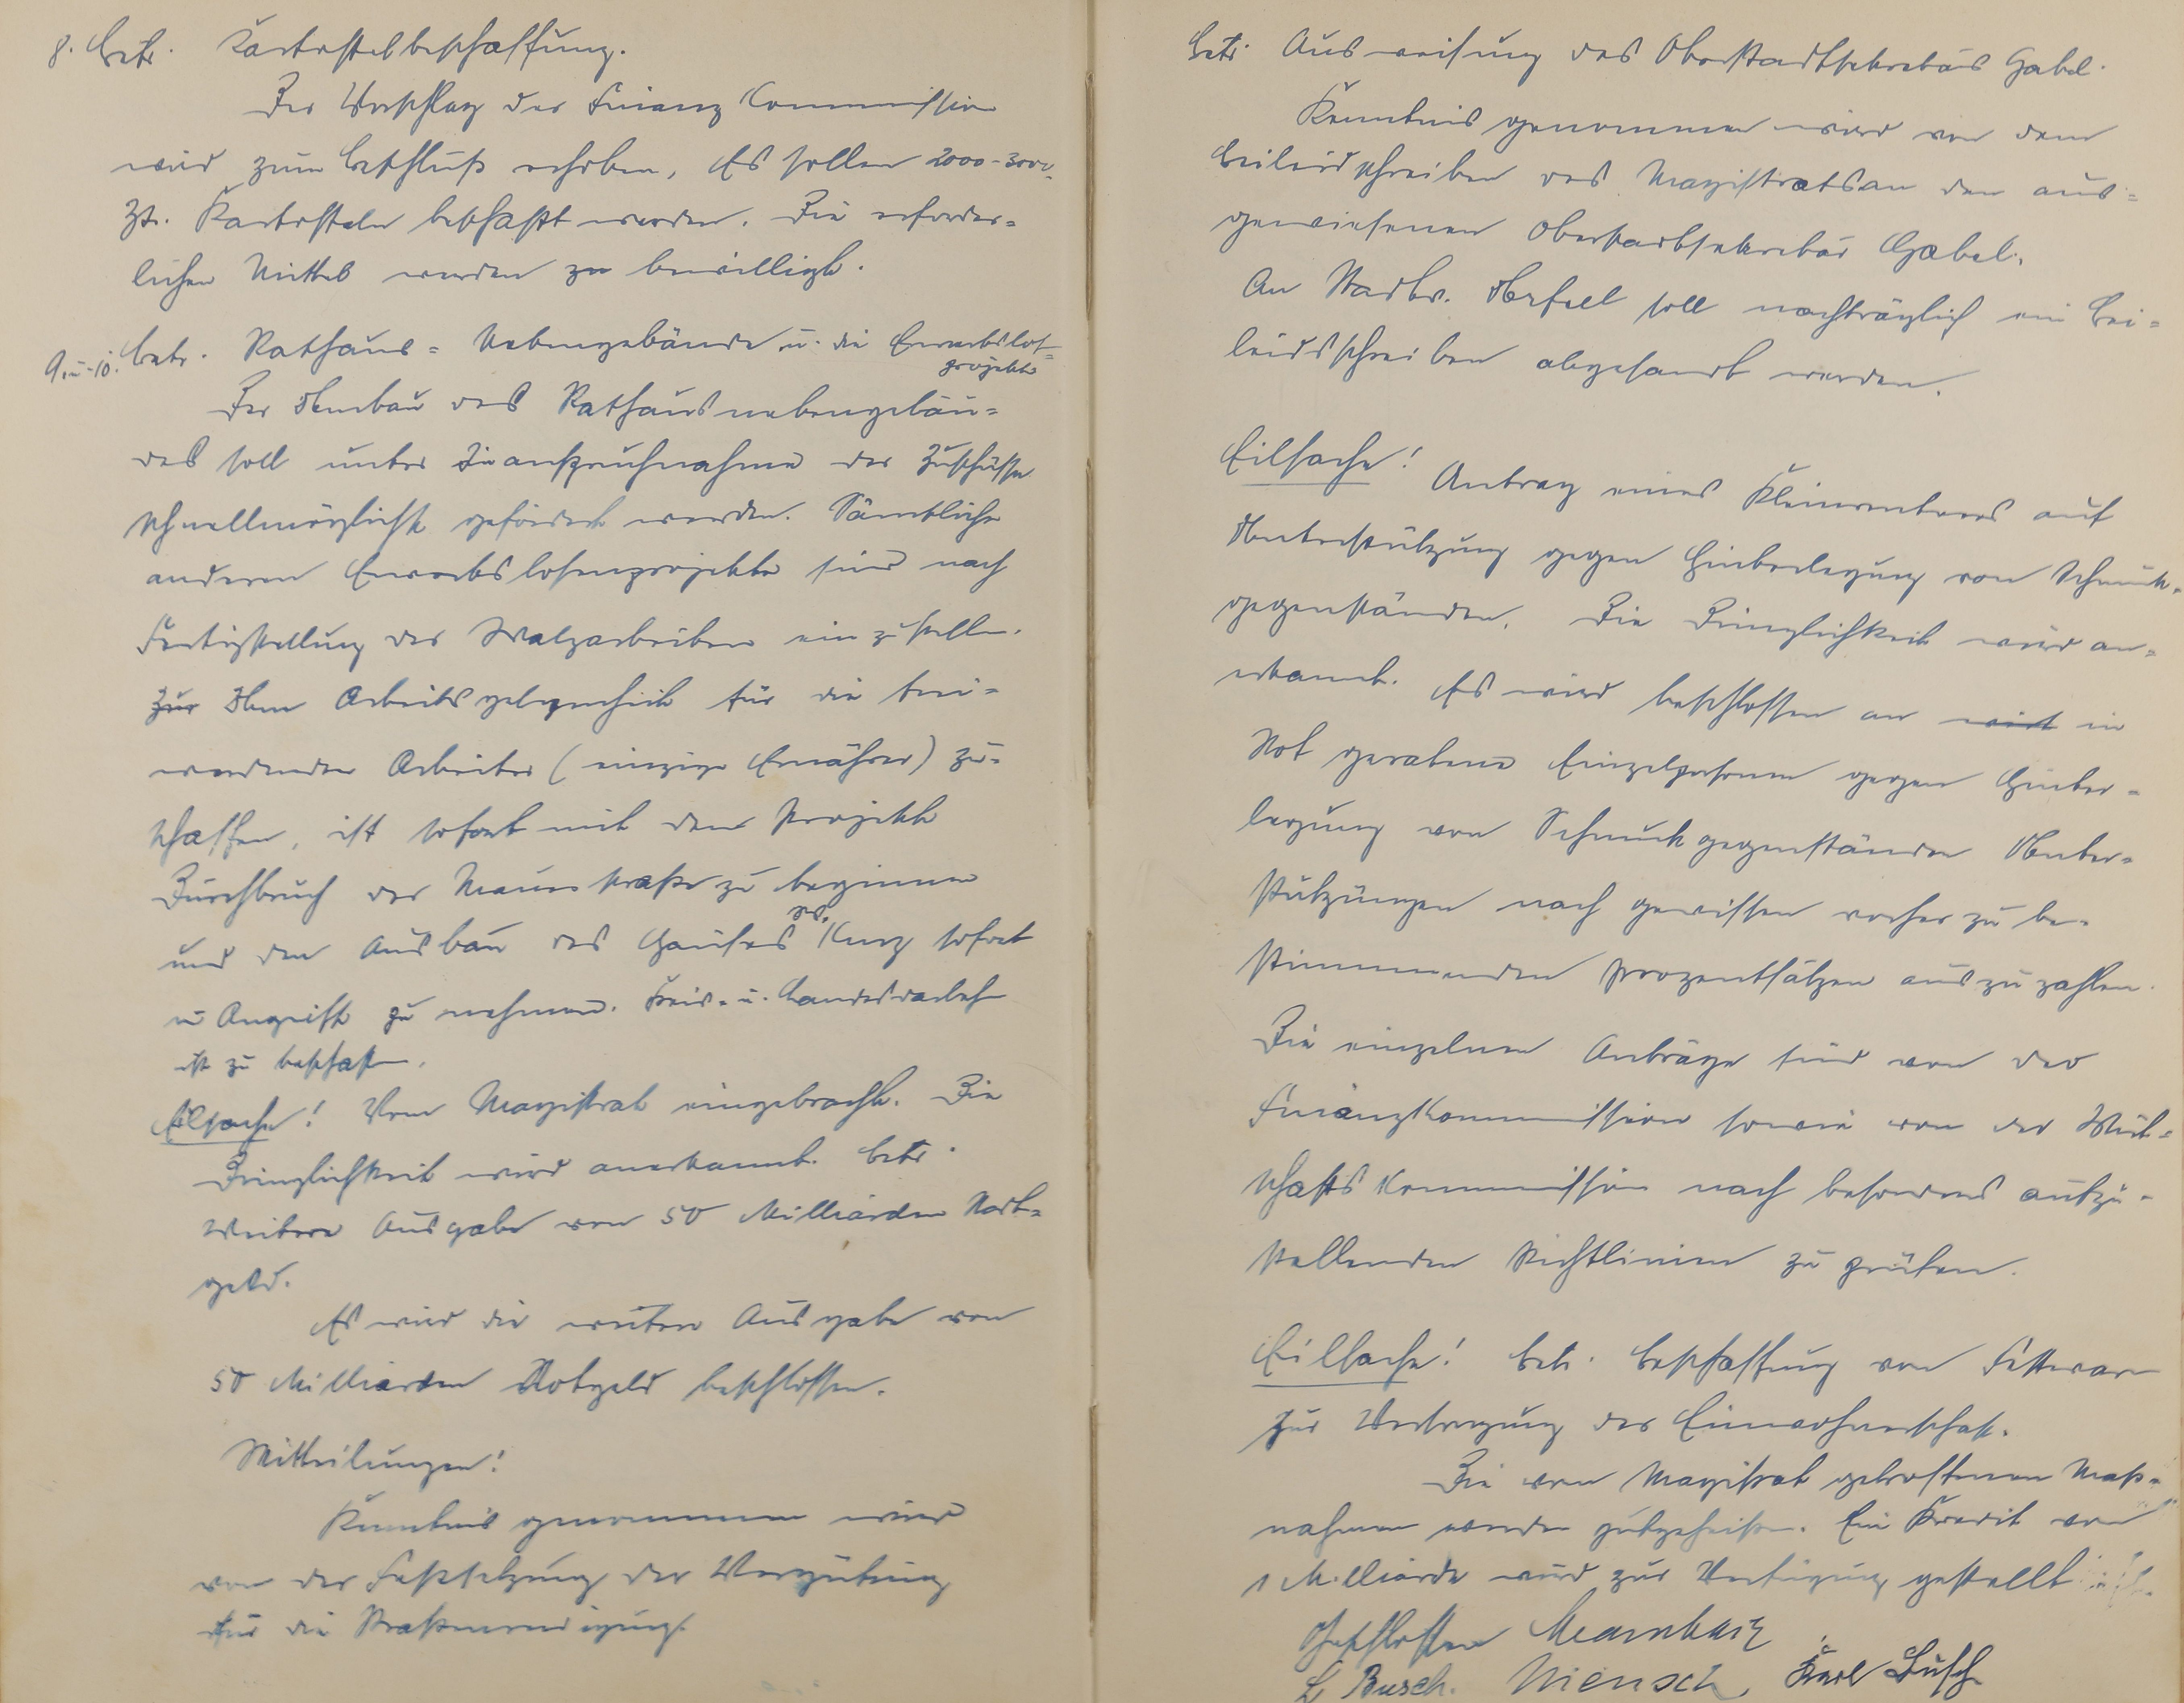 8. Betr. Kartoffelbeschaffung.
Der Vorschlag der Finanz Kommission
wird zum Beschluß erhoben, Es sollen 2000-3000
Ztr. Kartoffeln beschafft werden. Die erforder=
lichen Mittel werden zu bewilligt.
9. u. 10. Betr. Rathaus= Nebengebäude u. die Erwerbslos=
projekte
Der Umbau des Rathausnebengebäu=
des soll unter Inanspruchnahme der Zuschüsse
schnellmöglichst gefördert werden. Sämtliche
anderen Erwerbslosenprojekte sind nach
Fertigstellung der Walzarbeiten einzustellen.
Zur Um Arbeitsgelegenheit für die frei=
werdenden Arbeiter (einzige Ernährer) zu=
schaffen, ist sofort mit dem Projekt
Durchbruch der Mauerstraße zu beginnen
und den Ausbau des Hauses Kurz sofort
in Angriff zu nehmen. Kreis- u. Landesdarlehn
ist zu beschaffen.
Eilsache! Vom Magistrat eingebracht. Die
Dringlichkeit wird anerkannt. Betr.
Weitere Ausgabe von 50 Milliarden Not=
geld.
Es wird die weitere Ausgabe von
50 Milliarden Notgeld beschlossen.
Mitteilungen!
Kenntnis genommen wird
von der Festsetzung der Vergütung
für die Straßenreinigung.
Betr. Ausweisung des Oberstadtsekretärs Gabel.
Kenntnis genommen wird von dem
Beileidschreiben des Magistrats an den aus=
gewiesenen Oberstadtsekretär Gabel.
An Stadtv. soll nachträglich ein Bei=
leidsschreiben abgesandt werden.
Eilsache! Antrag eines Kleinrentners auf
Unterstützung gegen Hinterlegung von Schmuck=
gegenständen. Die Dringlichkeit wird an=
erkannt. Es wird beschlossen an wirt in
Not geratene Einzelpersonen gegen Hinter=
legung von Schmuckgegenständen Unter=
stützungen nach gewissen vorher zu be=
stimmenden Prozentsätzen auszuzahlen.
Die einzelnen Anträge sind von der
Finanzkommission sowie von der Wirt=
schaftskommission nach besonders aufzu=
stellenden Richtlinien zu prüfen.
Eilsache! Betr. Beschaffung von Fettwaren
zur Versorgung der Einwohnerschaft.
Die vom Magistrat getroffenen Maß=
nahmen werden gutgeheißen. Ein Kredit von
1 Milliarde wird zur Verfügung gestellt
Geschlossen
L Busch. Karl Busch